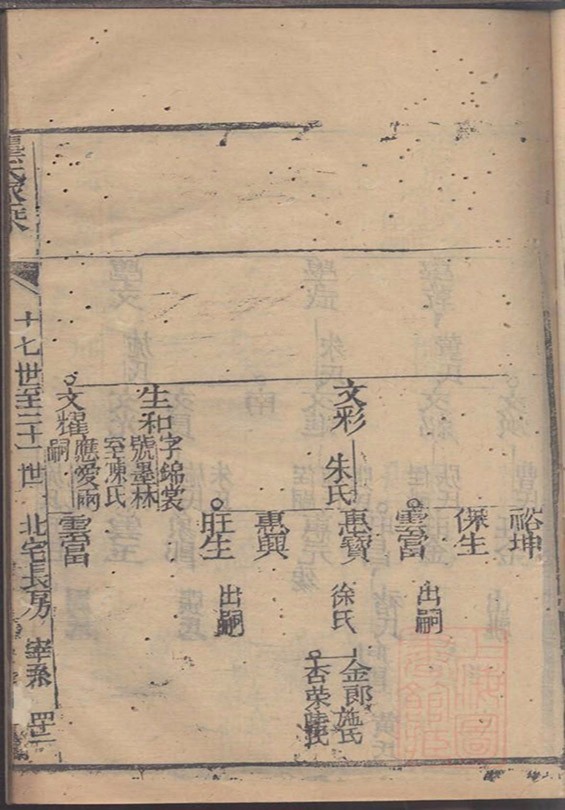 裕坤
傑生
雲富 出嗣
文彩 朱氏
惠寶 徐氏
金郎 施氏
杏榮 陸氏
惠興
旺生 出嗣
生和 字錦裳
號墨林
室陳氏
文耀 應愛兩
嗣
雲富
十七世至二十一世 北宅長房